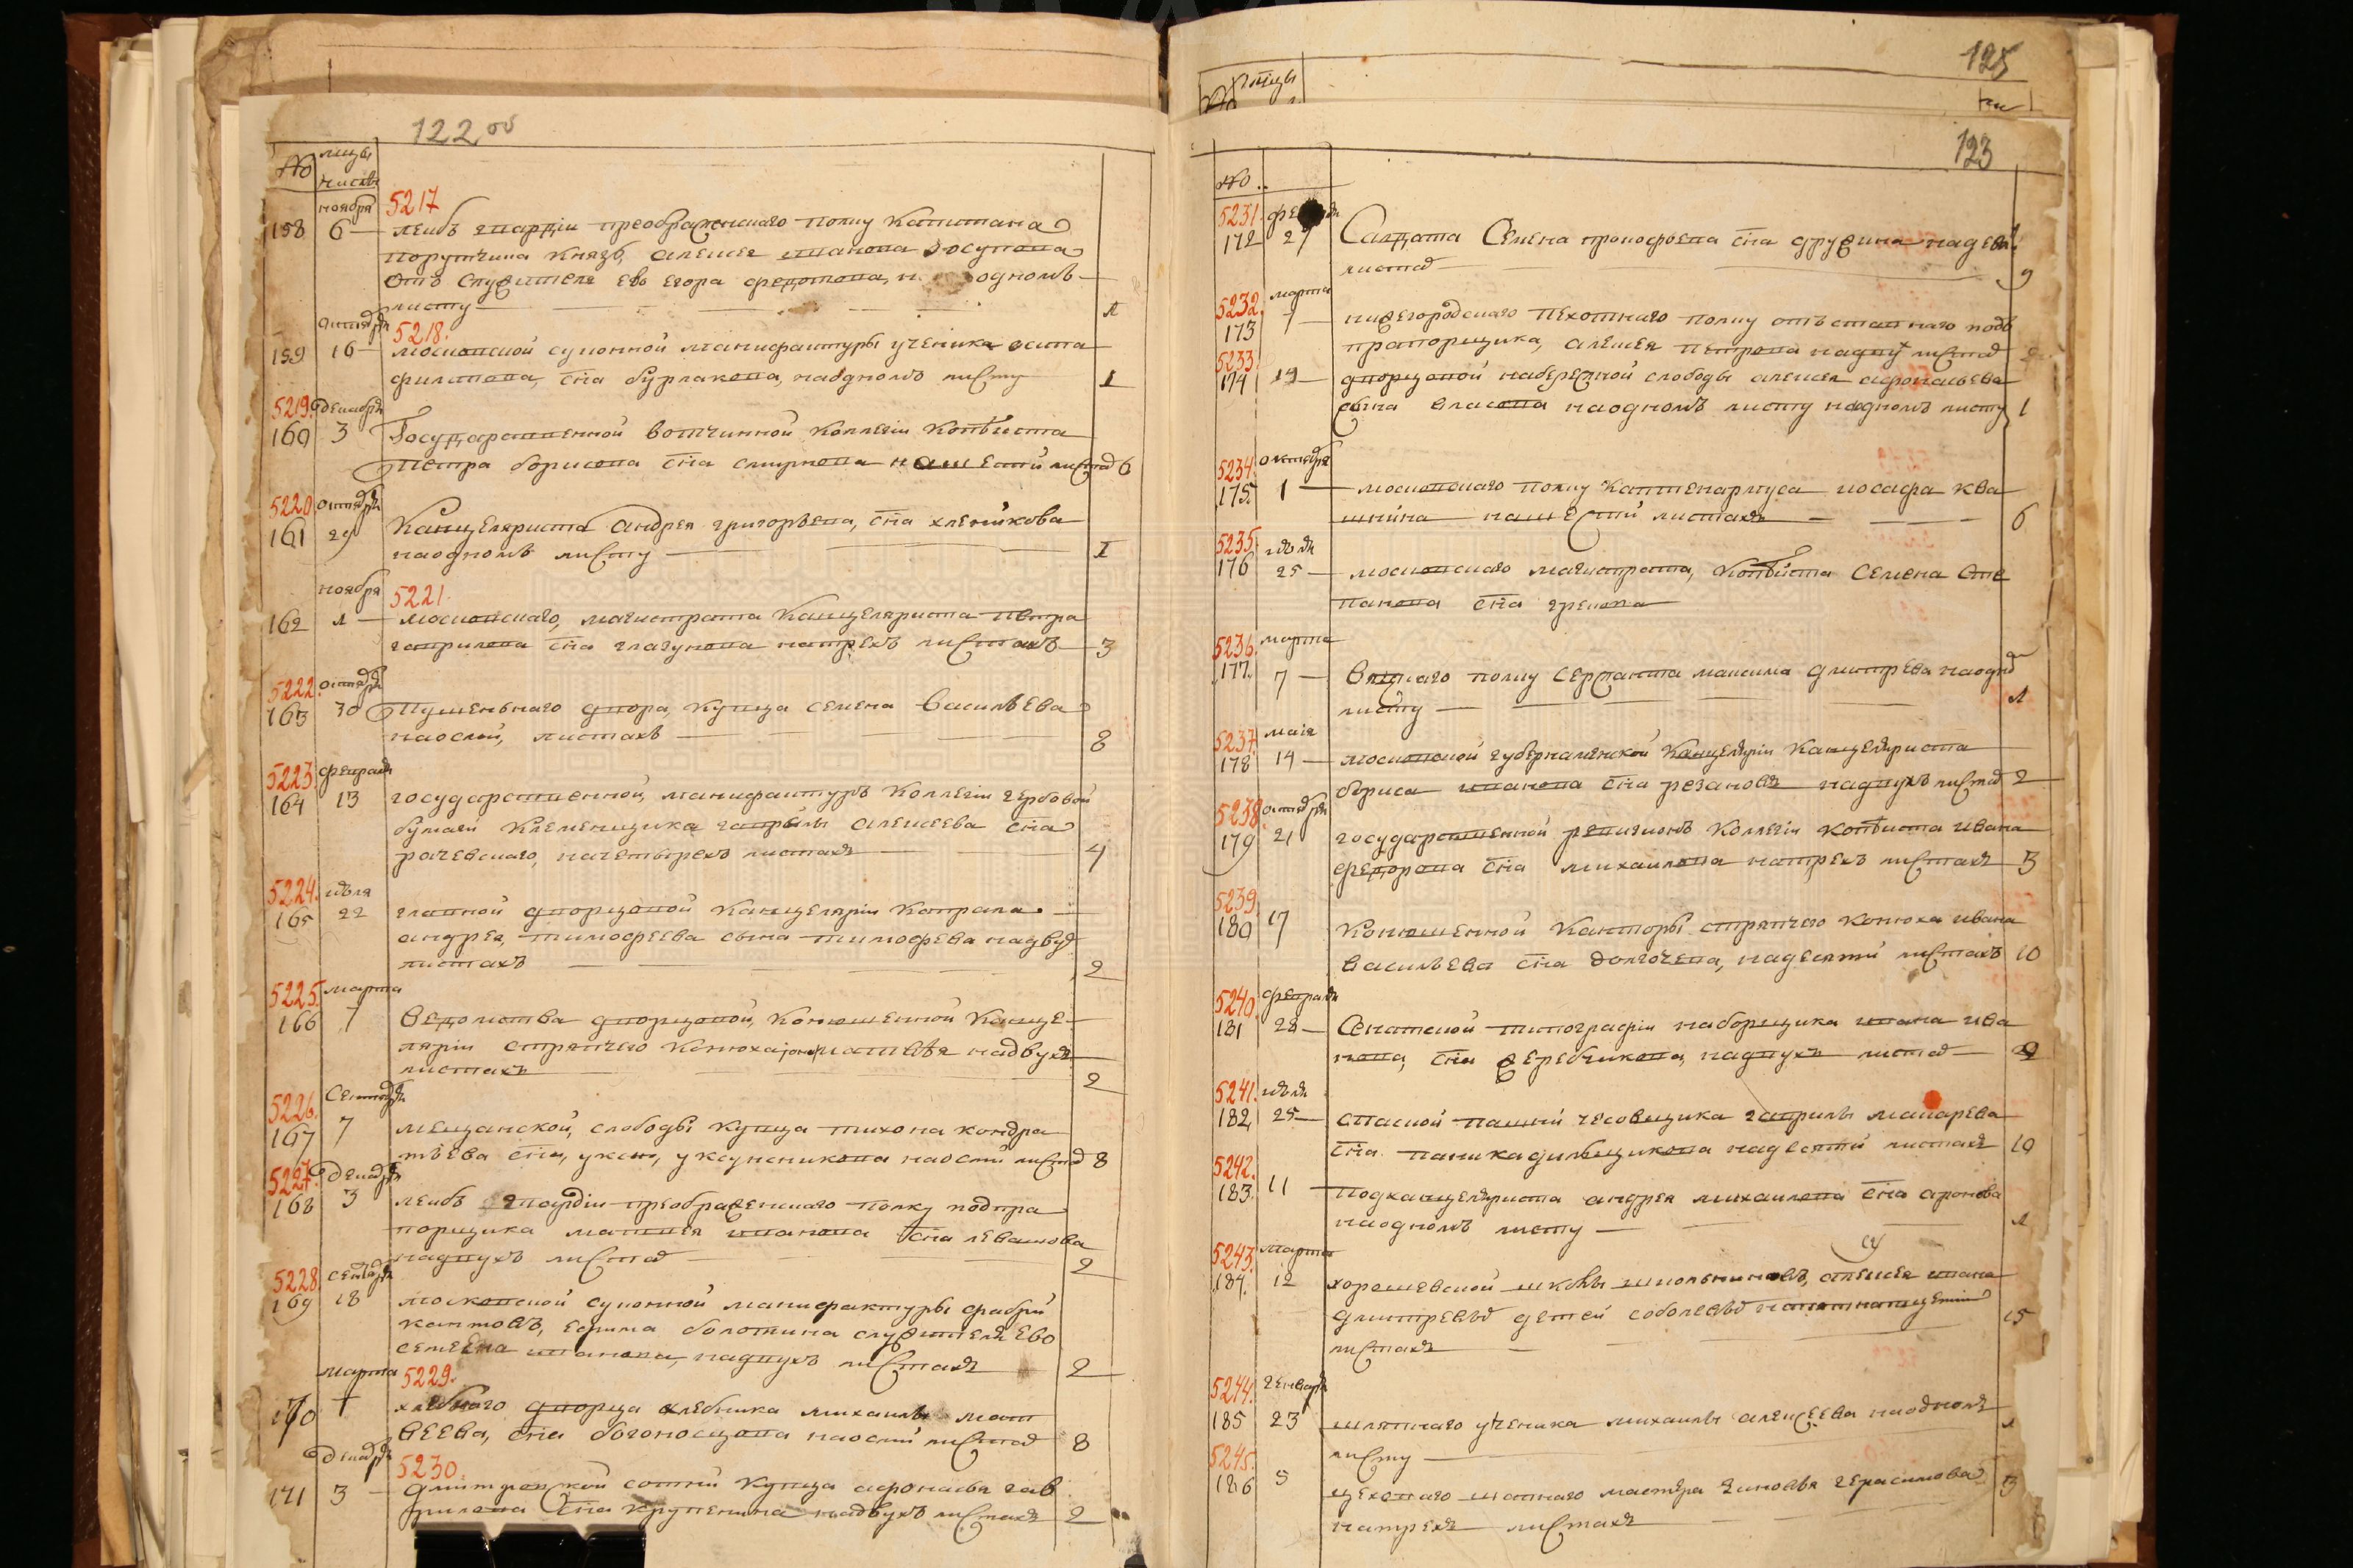 122 об
№ мцы
числы
ноября 5217
158 6 лейбъ гвардіи преображенского полку капитана
порутчика князь алексея иванова юсупова
отъ служителя ево егора федотова, н одномъ
листу 1
октября 5218.
159 16 московской суконной манифактуры ученика осипа
филипова, сна бурлакова, наодномъ листу 1
5219. декабря
160 3 Государственной вотчинной коллегіи копѣиста
петра борисова сна смирнова нашести листах 6
5220 октября
161 29 Канцеляриста андрея григорьева, сна хлебникова
наодномъ листу 1
ноября 5221.
162 1 московского, магистрата канцеляриста петра
гаврилова сна глагунова натрехъ листахъ 3
5222. октября
163 30 Пушечьного двора, купца семена васильева
наосми, листахъ 8
5223. февраля
164 13 государственной, манифактуръ коллегіи гербовой
бумаги клеменщика гаврилы алексеева сна
рачевского, начетырехъ листахъ 4
5224. июля
165 22 главной дворцовой канцеляріи капрала
андрея, тимофеева сына тимофева надвух
листахъ 2
5225. марта
166 7 Ведомства дворцовой, конюшенной канце
ляріи стряпчего конюха надвухъ
листахъ 2
5226. Сентября
167 7 мещанской, слободы купца тихона кондра
тьева сна, уксусникова наосми листах 8
5227. декабря
168 3 лейбъ гвардіи преображенского полку подпра
порщика матвея иванова сна левашова
надвухъ листах 2
5228. сентября
169 18 московской суконной манифактуры фабри
кантовъ, ефима болотина служителя ево
семена иванова, надвухъ листахъ 2
марта 5229.
170 1 хлебного дворца хлебника михаилы мат
веева, сна богоносцова наосми листах 8
декабря 5230.
171 3 дмитровской сотни купца афонасья гав
рилова сна крупенина надвухъ листахъ 2
№ мцы
125
123
№
5231. февраля
172 27 Салдата Семена прокофьева сна дружина надевя
листах 9
5232. марта
173 нижегородского пехотного полку отъставного подъ
прапорщика, алексея петрова надву листах 2
5233.
174 19 дворцовой набережной слободы алексея афонасьева
сына власова наодномъ листу наодномъ листу 1
5234. октября
175 1 московского полку каптенармуса иосафа ква
шнина нашести листахъ 6
5235. июля
176 25 московского магистрата, копѣиста Семена Сте
панова сна грекова
5236. марта
177. 7 Вятцкаго полку сержанта максима дмитрева наодно
листу 1
5237. маия
178 14 московской губернаменской канцеляріи канцеляриста
бориса иванова сна резанова надвухъ листах 2
5238. октября
179 21 государственной ревизионъ коллегіи копѣиста ивана
федорова сна михаилова натрехъ листахъ 3
5239
180 17 конюшенной канторы стряпчего конюха ивана
васильева сна долгочева, надесяти листахъ 10
5240. февраля
181 28 Сенатской типографіи наборщика ивана ива
нова, сна жеребчикова, надвухъ листах 2
5241. июля
182 25 спаской башни чесовщика гаврилы макарева
сна паникадильщикова надесяти листахъ 10
5242.
183. 11 подканцеляриста андрея михаилова сна аронова
наодномъ листу 1
5243. марта
184. 12 хорошевской школы школьниковъ, алексея ивана
дмитревыхъ детей соболевыхъ
листахъ 15
5244. генваря
185 23 шляпного ученика михаилы алексеева наодномъ
листу 1
5245.
186 5 цеховаго шляпнаго мастера зиновья герасимова
натрехъ листахъ 3